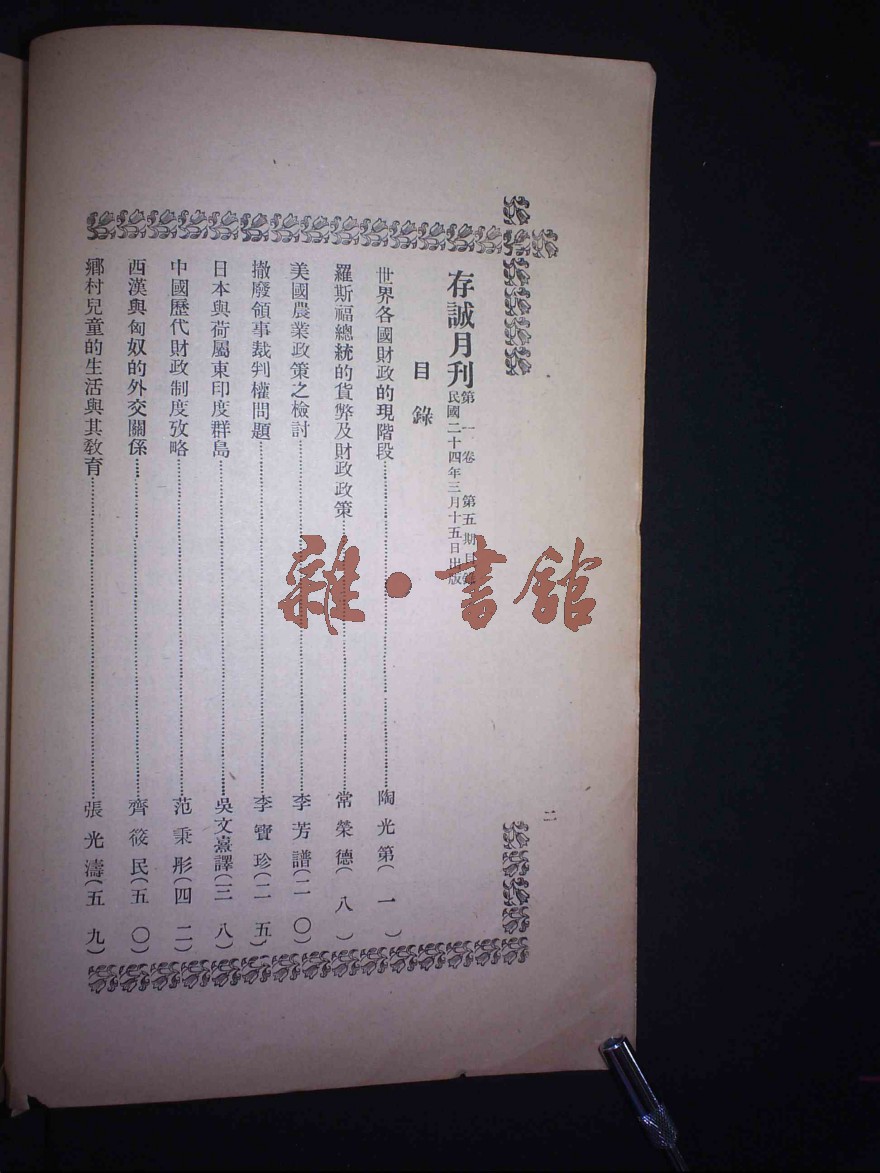 存誠月刊 第一卷 第五期目錄
民國二十四年三月十五日出版
目錄
世界各國財政的現階段……陶光第(一)
羅斯福總統的貨幣及財政政策……常榮德(八)
美國農業政策之檢討……李芳譜(二〇)
撤廢領事裁判權問題……李寶珍(二五)
日本與荷屬東印度群島……吳文熹譯(三八)
中國歷代財政制度攷略……范秉彤(四二)
西漢與匈奴的外交關係……齊筱民(五〇)
鄉村兒童的生活與其教育……張光濤(五九)
二
雜·書館